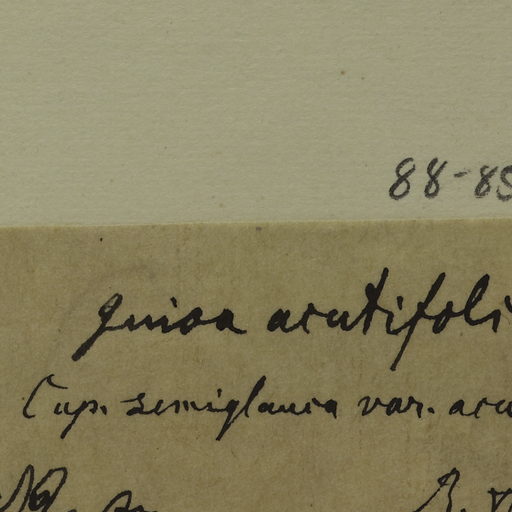 88-85
guioa acutifoli
Cup. semiglauca var. acu